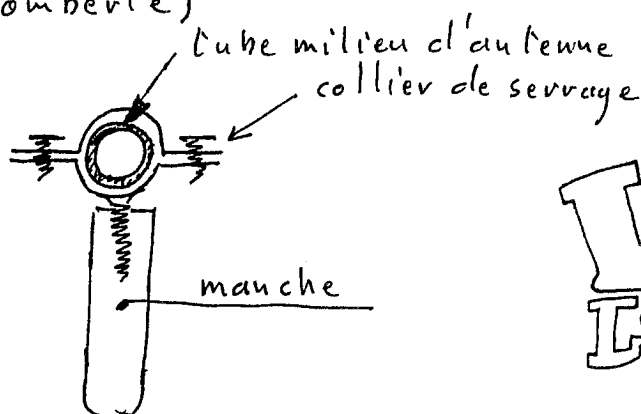 omberie)
tube milieu d'antenne
collier de serrage
manche
L